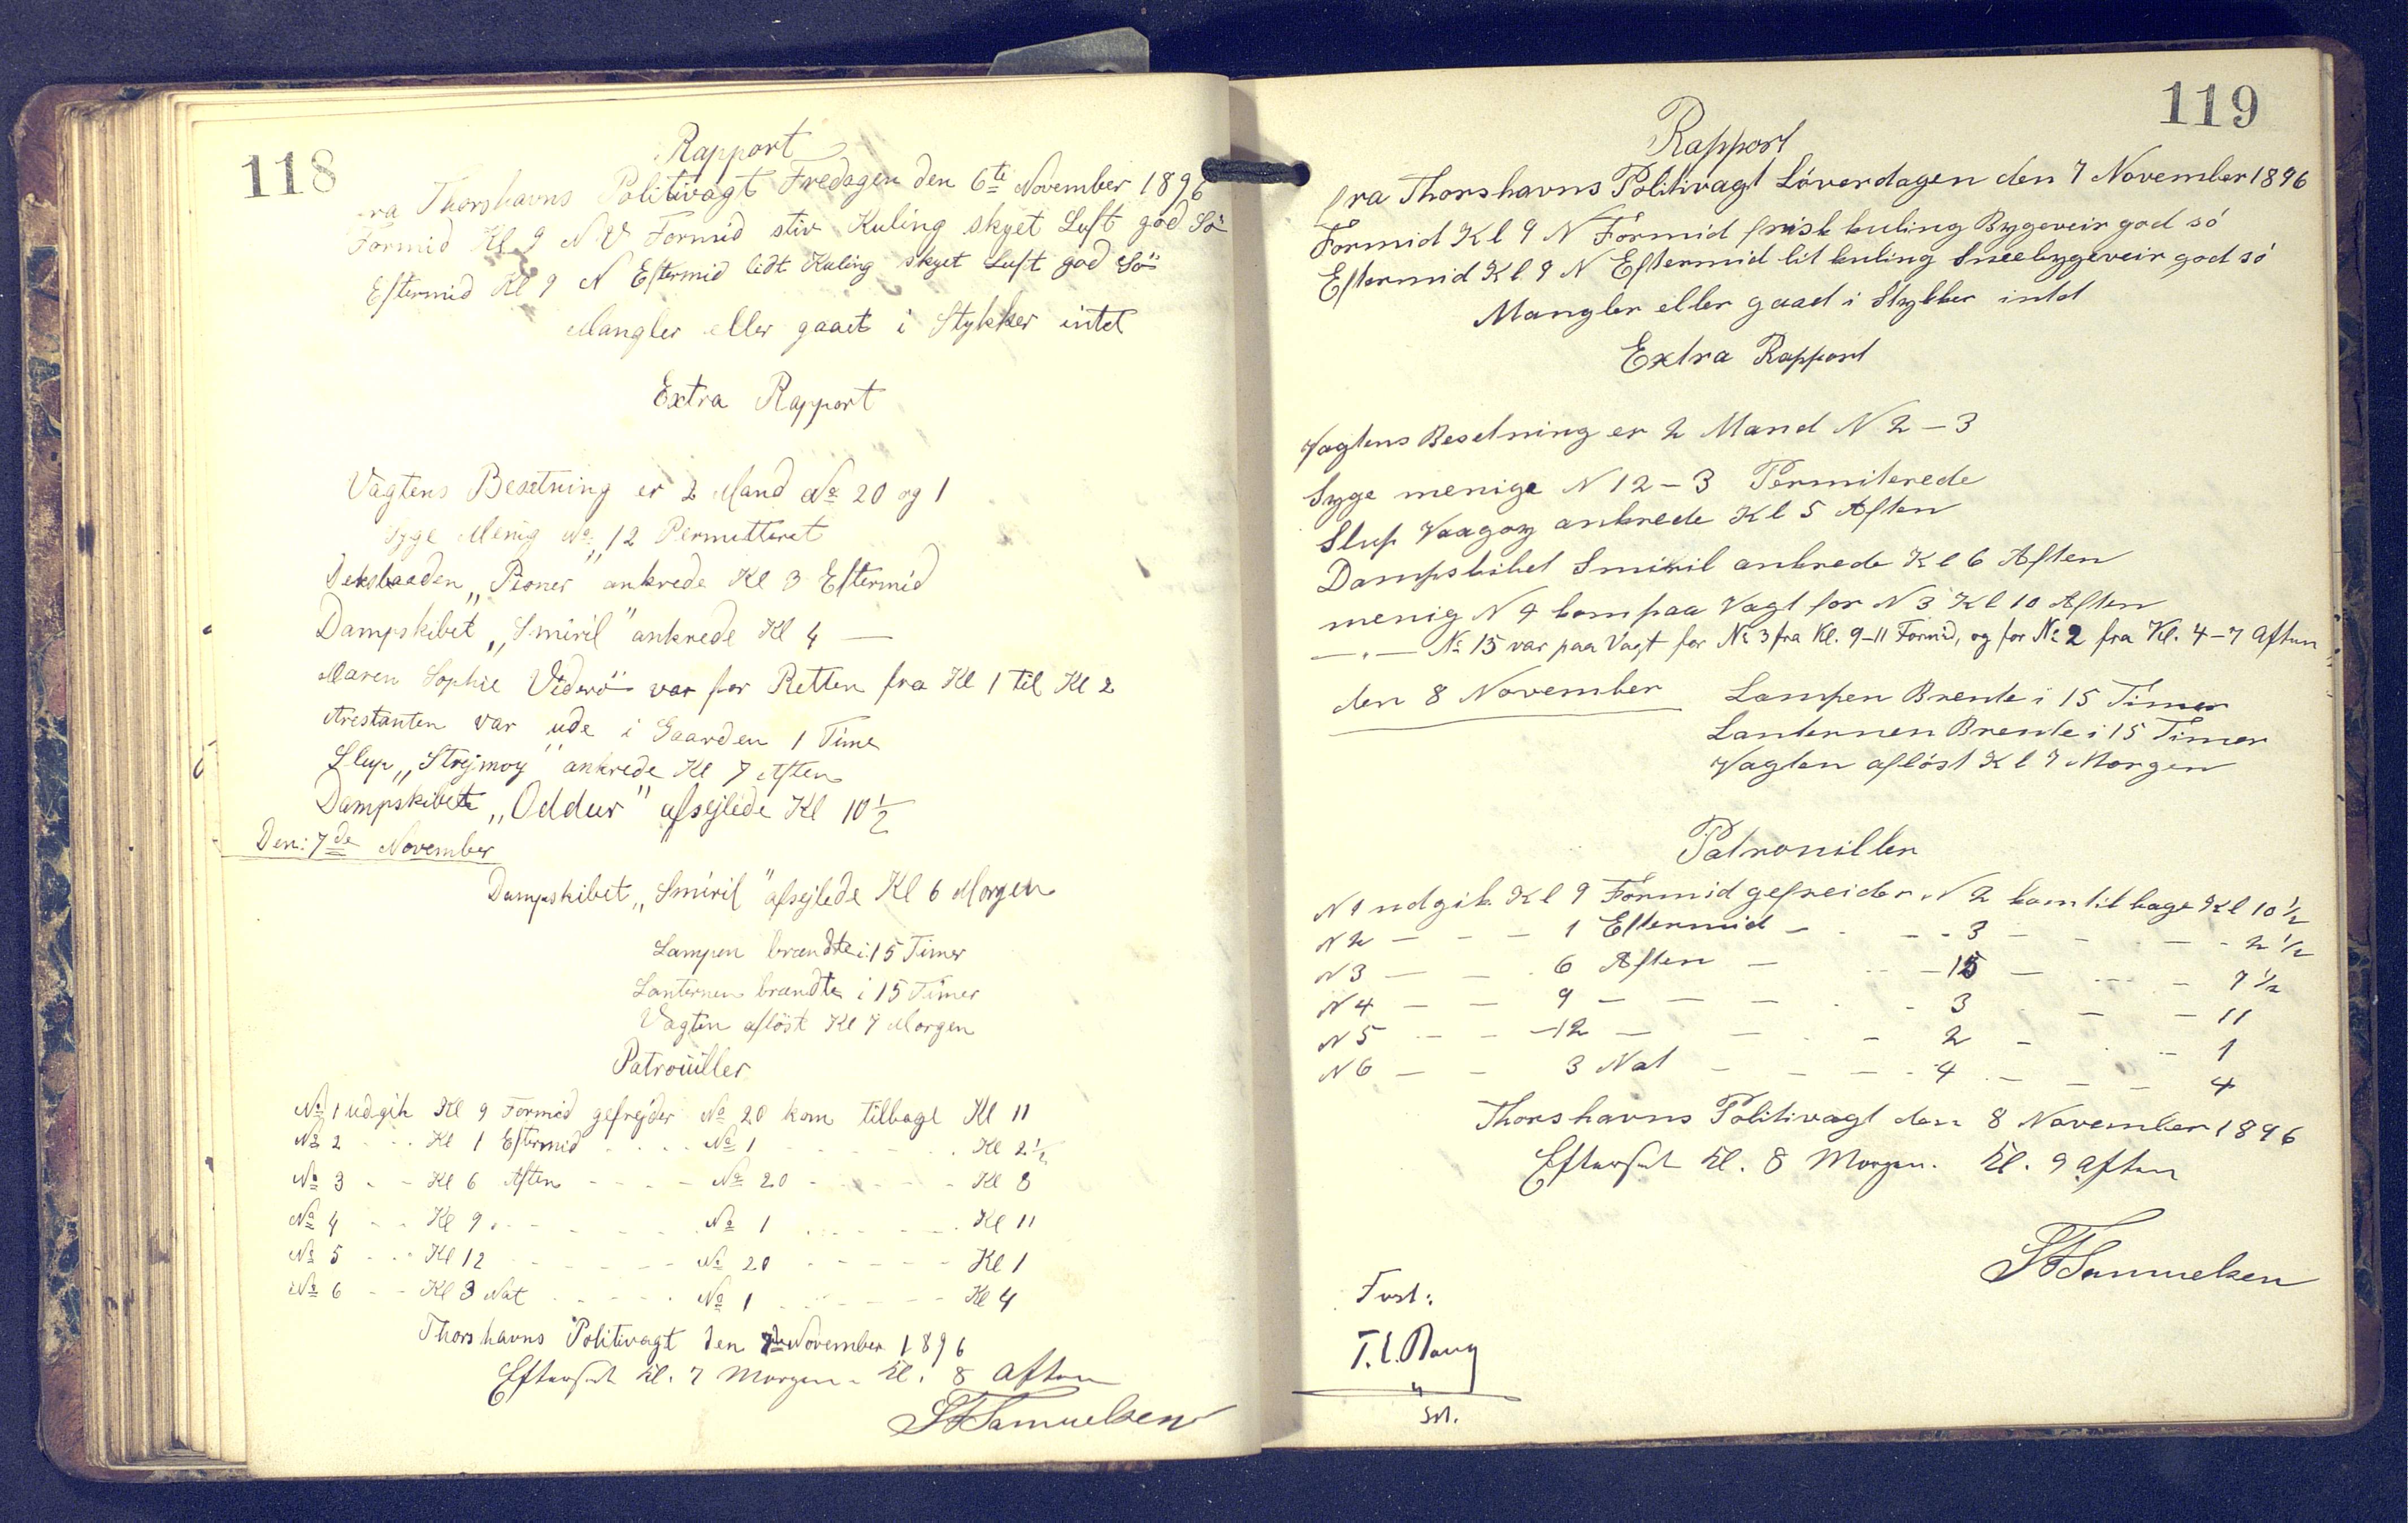 118
Rapport
fra Thorshavns Politivagt Fredagen den 6te November 1896
Formid Kl 9 N V Formid stiv Kuling skyet Luft god Sö
Eftermid Kl 9 N Eftermid lidt Kuling skyet Luft god Sö
Mangler eller gaaet i Stykker intet
Extra Rapport
Vagtens Besetning er 2 Mand No 20 og 1
Syge Menig No „12 Permitteret
Deksbaaden „Pioner" ankrede Kl 3 Eftermid
Dampskibet „Smiril" ankrede Kl 4 —
Maren Sophie Viderö var for Retten fra Kl 1 til Kl 2
Arestanten var ude i Gaarden 1 Time
Slup „Strejmoy" ankrede Kl 7 Aften
Dampskibet „Oddur" afsejlede Kl 10 1/2
Den: 7de November
Dampskibet „Smiril" afsejlede Kl 6 Morgen
Lampen brændte i 15 Timer
Lanternen brændte i 15 Timer
Vagten aflöst Kl 7 Morgen
Patrouiller
No 1 udgik Kl 9 Formid gefrejder No 20 kom tilbage Kl 11
No 2 - - - Kl 1 Eftermid - - - - No 1 - - - - - - Kl 2 1/2
No 3 - - Kl 6 Aften - - - - No 20 - - - - - Kl 8
No 4 - - Kl 9 - - - - - - No 1 - - - - - - Kl 11
No 5 - - - Kl 12 - - - - - - No 20 - - - - - Kl 1
No 6 - - Kl 3 Nat - - - - - No 1 - - - - - - Kl 4
Thorshavns Politivagt den 7de November 1896
Efterset Kl. 7 Morgen - Kl. 8 Aften
SFSamuelsen
119
Rapport
fra Thorshavns Politivagt Lóverdagen den 7 November 1896
Formid Kl 9 N Formid frisk kuling Bygeveir god só
Eftermid Kl 9 N Eftermid lit kuling Sneebygeveir god só
Mangler eller gaaet i Stykker intet
Extra Rapport
Vagtens Besetning er 2 Mand N 2 – 3
Syge menige N 12 – 3 Permiterede
Slup Vaagoy ankrede Kl 5 Aften
Dampskibet Smiril ankrede Kl 6 Aften
menig N 4 kom paa Vagt for N 3 Kl 10 Aften
— „ — No 15 var paa Vagt for No 3 fra Kl. 9–11 Formid, og for No 2 fra Kl. 4–7 Aften
den 8 November Lampen Brente i 15 Timer
Lanternen Brente i 15 Timer
Vagten aflóst Kl 7 Morgen
Patrouiller
N 1 udgik Kl 9 Formid gefreider N 2 kom tilbage Kl 10 1/2
N 2 — - — 1 Eftermid — - - - 3 — - - — - 2 1/2
N 3 — — - 6 Aften — - - — 15 — - - — 7 1/2
N 4 — — 9 — — — - - 3 - — — 11
N 5 — - — 12 — — - - 2 — - - — 1
N 6 — — 3 Nat — — — - 4 - — — — 4
Thorshavns Politivagt den 8 November 1896
Efterset Kl. 8 Morgen. Kl. 9 Aften
SFSamuelsen